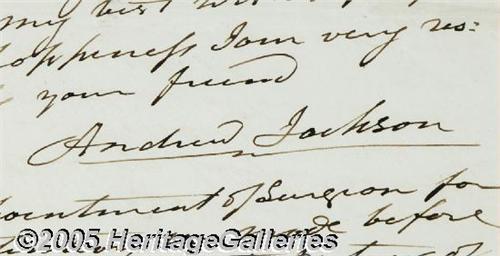 my best
happeness I am very res:
your friend
Andrew Jackson
pointment of Surgeon for
made before
©2005 HeritageGalleries